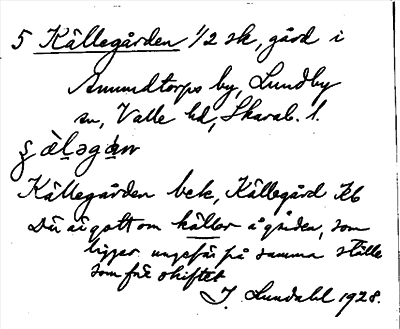 5 Källegården 1/2 sk, gård i
Amundtorps by, Lundby
sn, Valle hd, Skarab. l.
Källegården bek, Källegård Kb
Du ä gott om källor å gården, som
ligger ungefär på samma ställe
som före skiftet
J. Lundahl 1928.